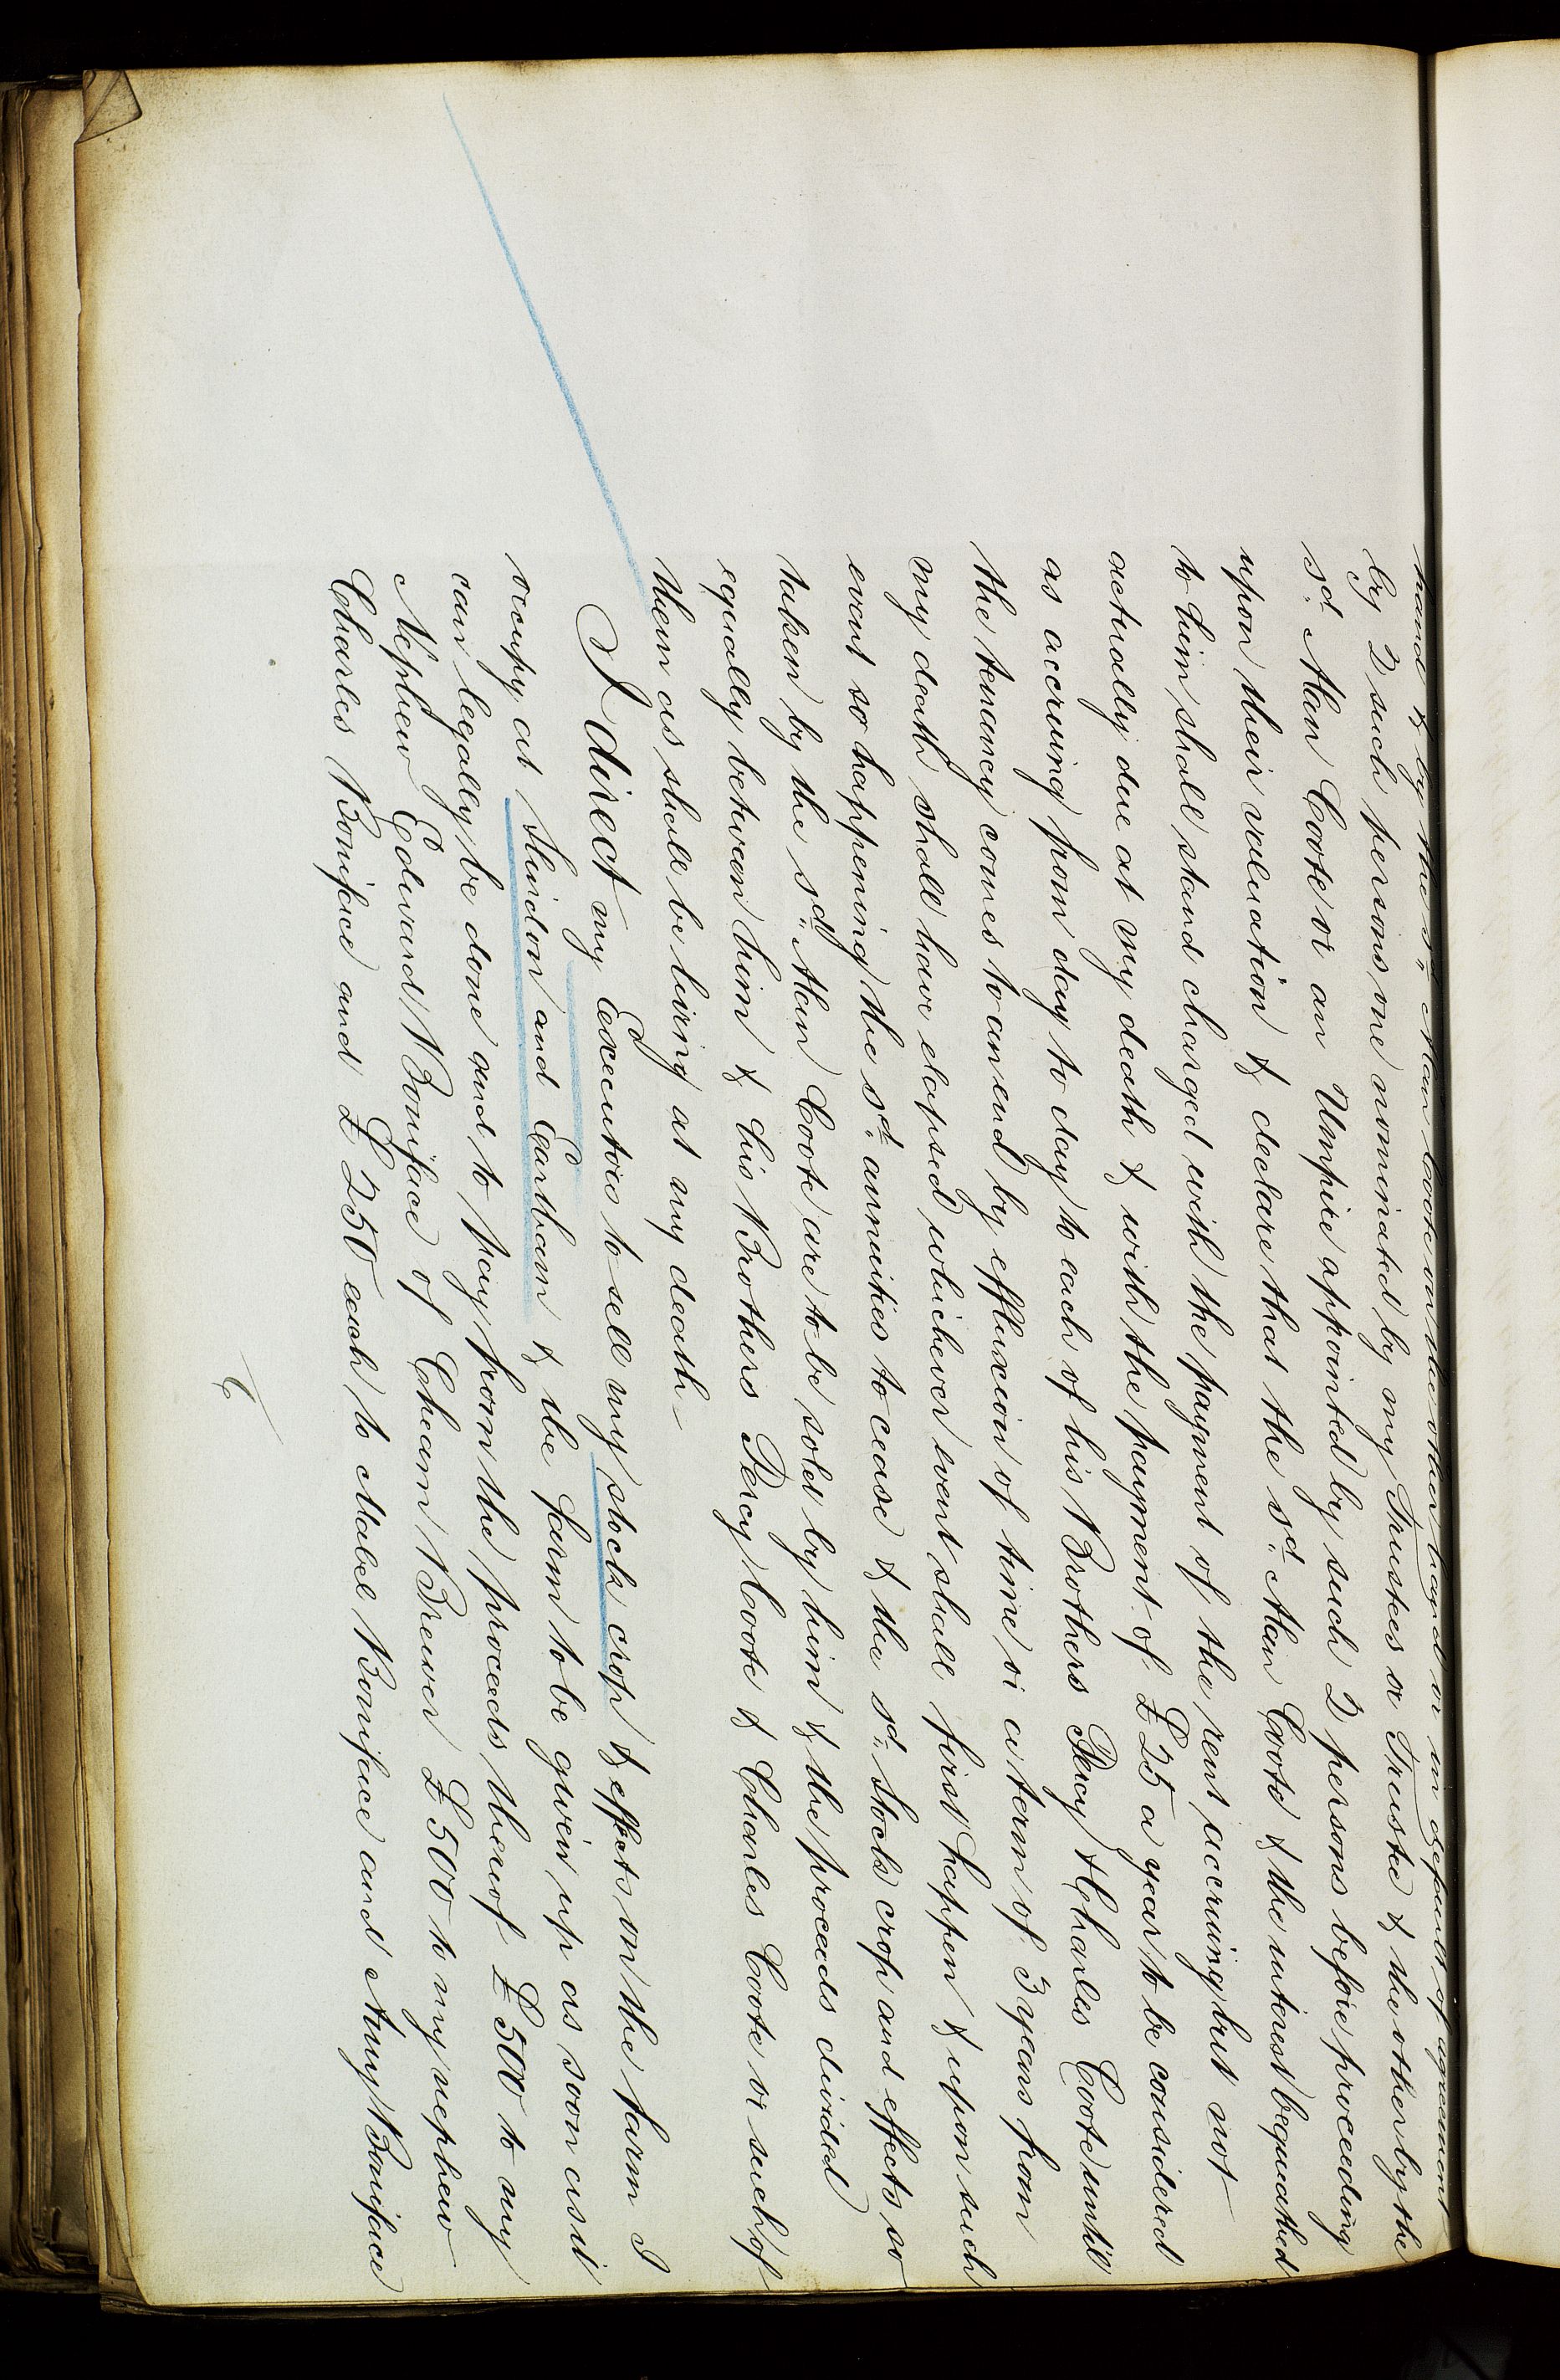 hand & by the sd. Alan Coote on the other hand or in default of agreement
by 2 such persons one nominated by my Trustees or Trustee & the other by the
sd. Alan Coote or an Umpire appointed by such 2 persons before proceeding
upon their valuation & declare that the sd. Alan Coote & the interest bequeathed
to him shall stand charged with the payment of the rent accruing but not
actually due at my death & with the payment of £25 a year to be considered
as accruing from day to day to each of his Brothers Percy & Charles Coote until
the tenancy comes to an end by effluxion of time or a term of 3 years from
my death shall have elapsed whichever event shall first happen & upon such
event so happening the sd. annuities to cease & the sd. stock crop and effects so
taken by the sd. Alan Coote are to be sold by him & the proceeds divided
equally between him & his Brothers Percy Coote & Charles Coote or such of
them as shall be living at my death
I direct my Executors to sell my stock crop & effects on the farm I
occupy at Slindon and Eartham & the farm to be given up as soon as it
can legally be done and to pay from the proceeds thereof £500 to my
Nephew Edward Boniface of Cheam Brewer £500 to my nephew
Charles Boniface and £250 each to Mabel Boniface and Amy Boniface